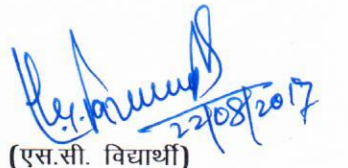 22/08/2017
(एस.सी. विद्यार्थी)